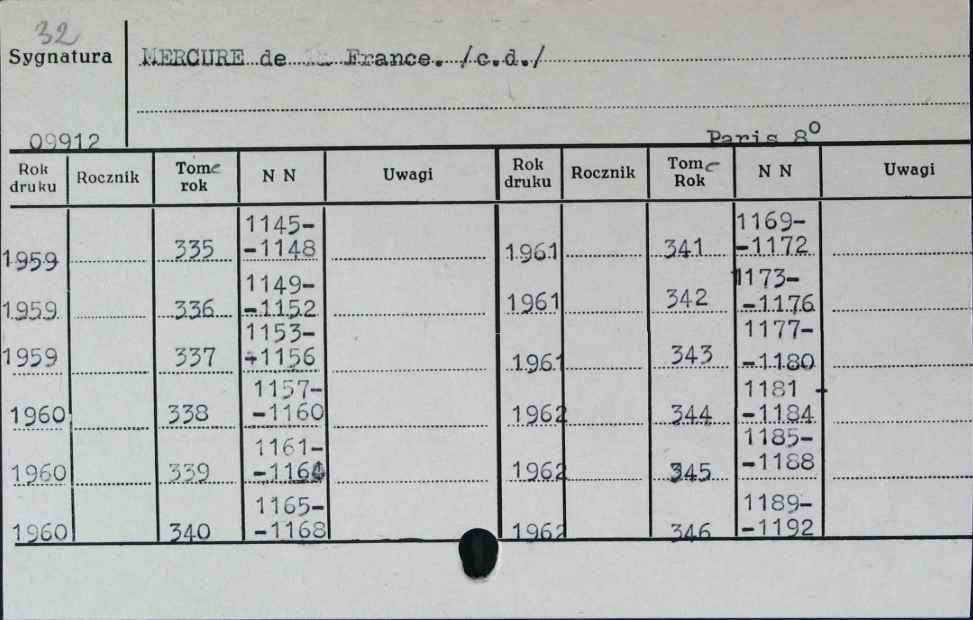 32
Sygnatura
MERCURE de France. /c.d./
09912
Paris 8º
Rok druku Rocznik Tom rok N N Uwagi Rok druku Rocznik Tom Rok N N Uwagi
1145- 1169-
1959 335 -1148 1961 341 -1172
1149- 1173-
1959 336 -1152 1961 342 -1176
1153- 1177-
1959 337 -1156 1961 343 -1180
1157- 1181 -
1960 338 -1160 1962 344 -1184
1161- 1185-
1960 339 -1164 1962 345 -1188
1165- 1189-
1960 340 -1168 1962 346 -1192